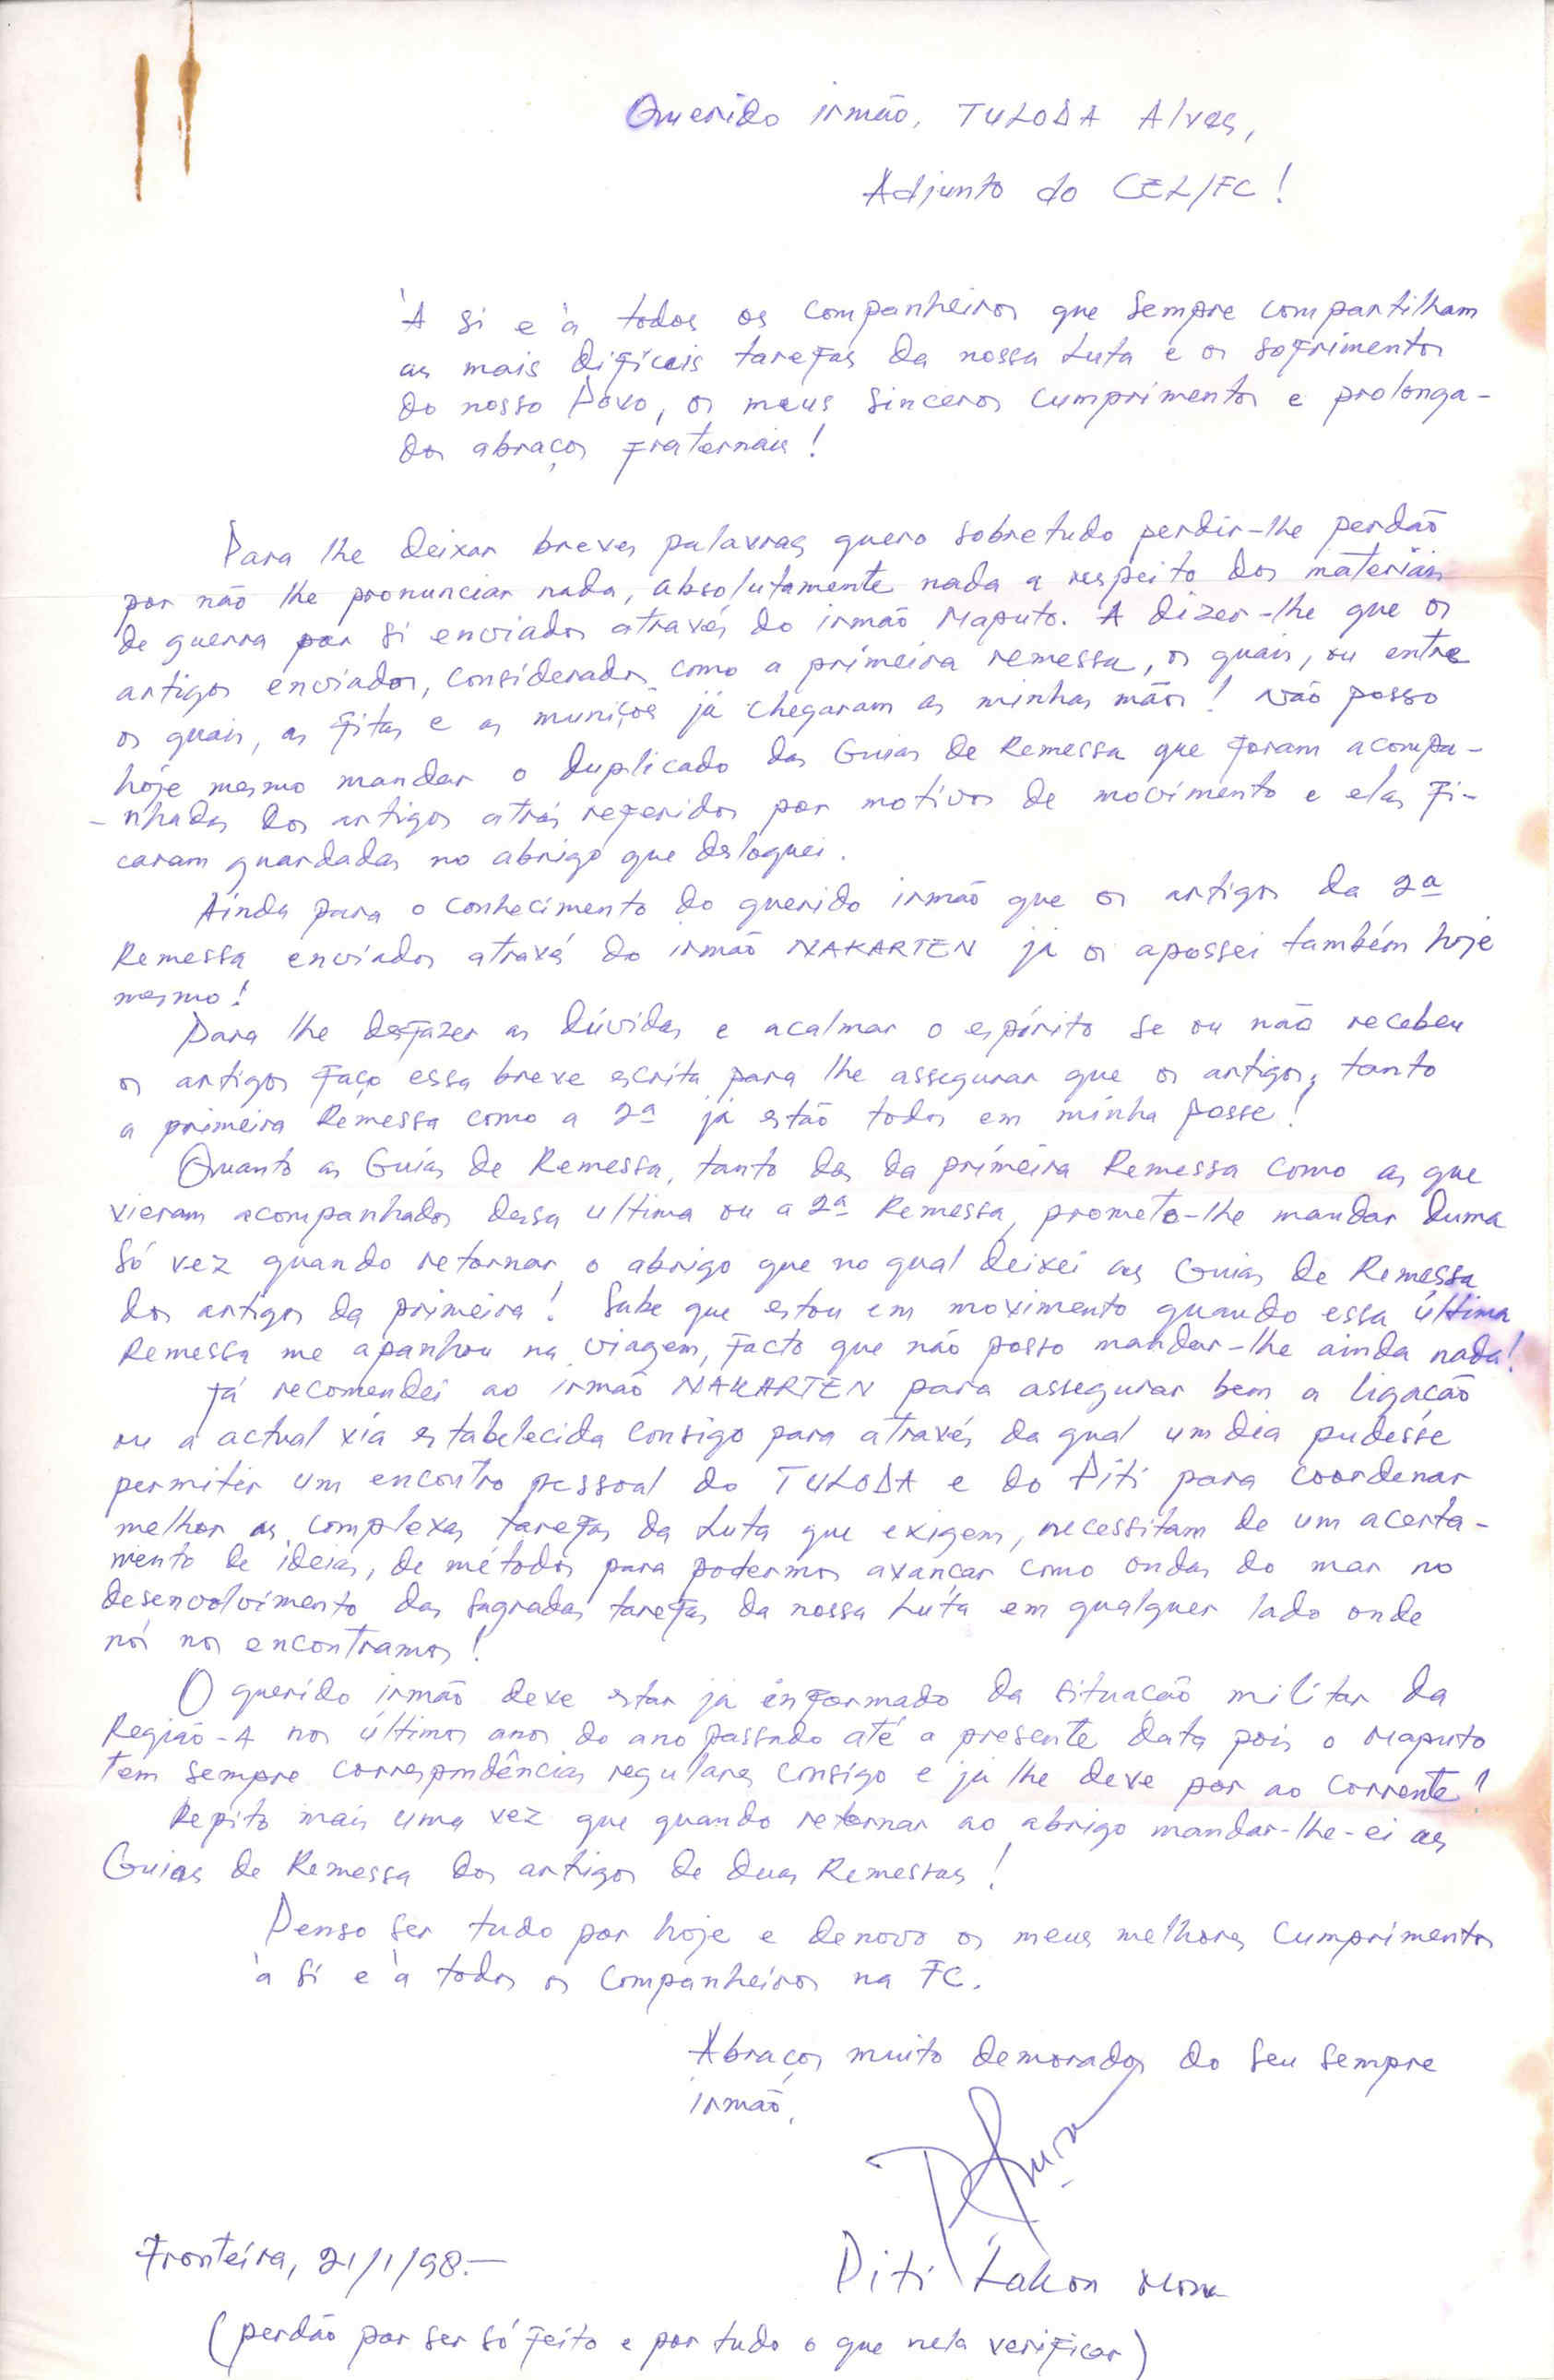 Querido irmão, TULODA Alves,
Adjunto do CEL/FC!
'A si e 'a todos os companheiros que sempre compartilham
as mais difíceis tarefas da nossa Luta e os sofrimentos
do nosso Povo, os meus sinceros cumprimentos e prolonga-
dos abraços fraternais!
Para lhe deixar breves palavras quero sobretudo perdir-lhe perdão
por não lhe pronunciar nada, absolutamente nada a respeito dos materiais
de guerra por si enviados através do irmão Maputo. A dizer-lhe que os
artigos enviados, considerados como a primeira remessa, os quais, ou entre
os quais, as fitas e as muniçoe já chegaram as minhas mãos! Não posso
hoje mesmo mandar o duplicado das Guias de Remessa que foram acompa-
-nhadas dos artigos atrás referidos por motivos de movimento e elas fi-
caram guardadas no abrigo que desloquei.
Ainda para o conhecimento do querido irmão que os artigos da 2ª
Remessa enviados atravé do irmão NAKARTEN já os apossei também hoje
mesmo!
Para lhe desfazer as dúvidas e acalmar o espírito se ou não recebeu
os artigos faço essa breve escrita para lhe assegurar que os artigos, tanto
a primeira Remessa como a 2ª já estão todos em minha posse!
Quanto as Guias de Remessa, tanto das da primeira Remessa como as que
vieram acompanhados dessa ultima ou a 2ª Remessa, prometo-lhe mandar duma
só vez quando retornar o abrigo que no qual deixei as Guias de Remessa
dos artigos da primeira! Sabe que estou em movimento quando essa última
Remessa me apanhou na viagem, facto que não posso mandar-lhe ainda nada!
Já recomendei ao irmão NAKARTEN para assegurar bem a ligação
ou a actual via estabelecida consigo para através da qual um dia pudesse
permitir um encontro pessoal do TULODA e do Piti para coordenar
melhor as complexas tarefas da Luta que exigem, necessitam de um acerta-
mento de ideias, de métodos para podermos avançar como ondas do mar no
desenvolvimento das sagradas tarefas da nossa Luta em qualquer lado onde
nós nos encontramos!
O querido irmão deve estar já informado da situação militar da
Região-A nos últimos anos do ano passado até a presente data pois o Maputo
tem sempre correspondências regulares consigo e já lhe deve por ao corrente!
Repito mais uma vez que quando retornar ao abrigo mandar-lhe-ei as
Guias de Remessa dos artigos de duas Remessas!
Penso ser tudo por hoje e denovo os meus melhores cumprimentos
'a si e 'a todos os companheiros na FC.
Abraços muito demorados do seu sempre
irmão,
Fronteira, 21/1/98.-
Piti Lakon
(perdão por ser só feito e por tudo o que nela verificar)